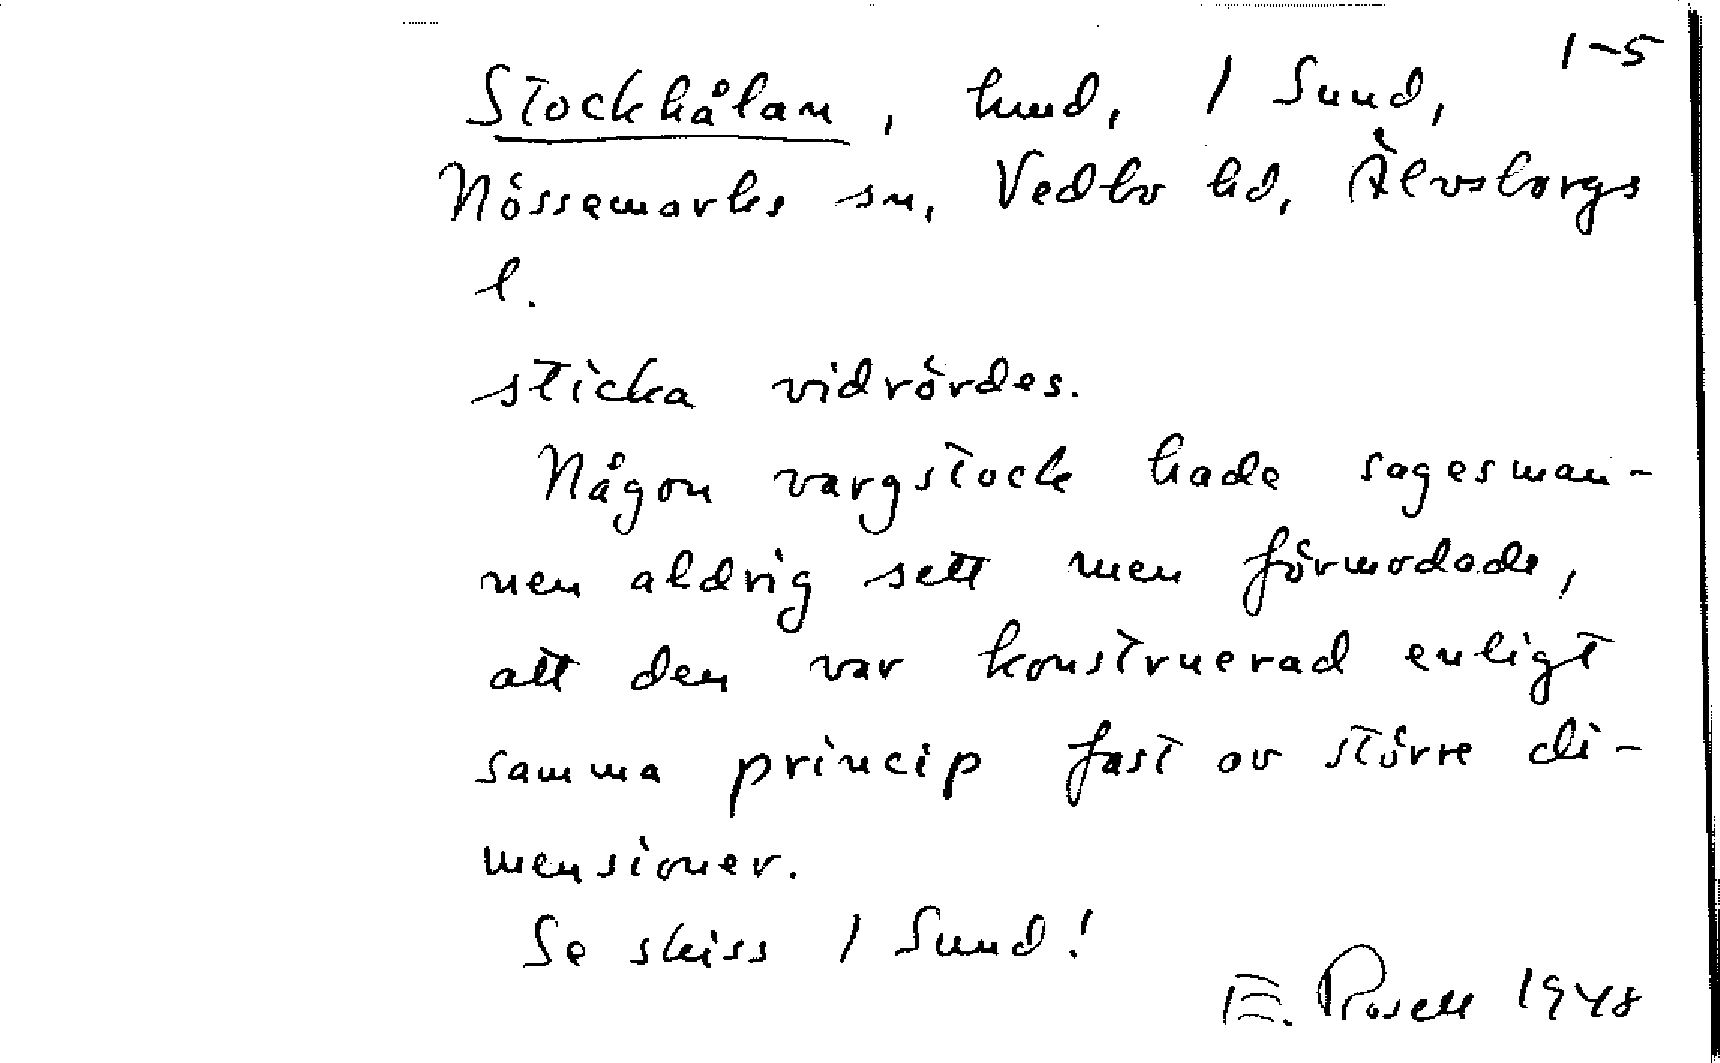 1-5
Stockhålan, hmd, 1 Sund,
Nössemarks sn, Vedbo hd, Älvsborgs
l.
sticka vidrördes.
Någon vargstock hade sagesman-
nen aldrig sett men förmodade,
att den var konstruerad enligt
samma princip fast av större di-
mensioner.
Se skiss 1 Sund!
E. Rosell 1948